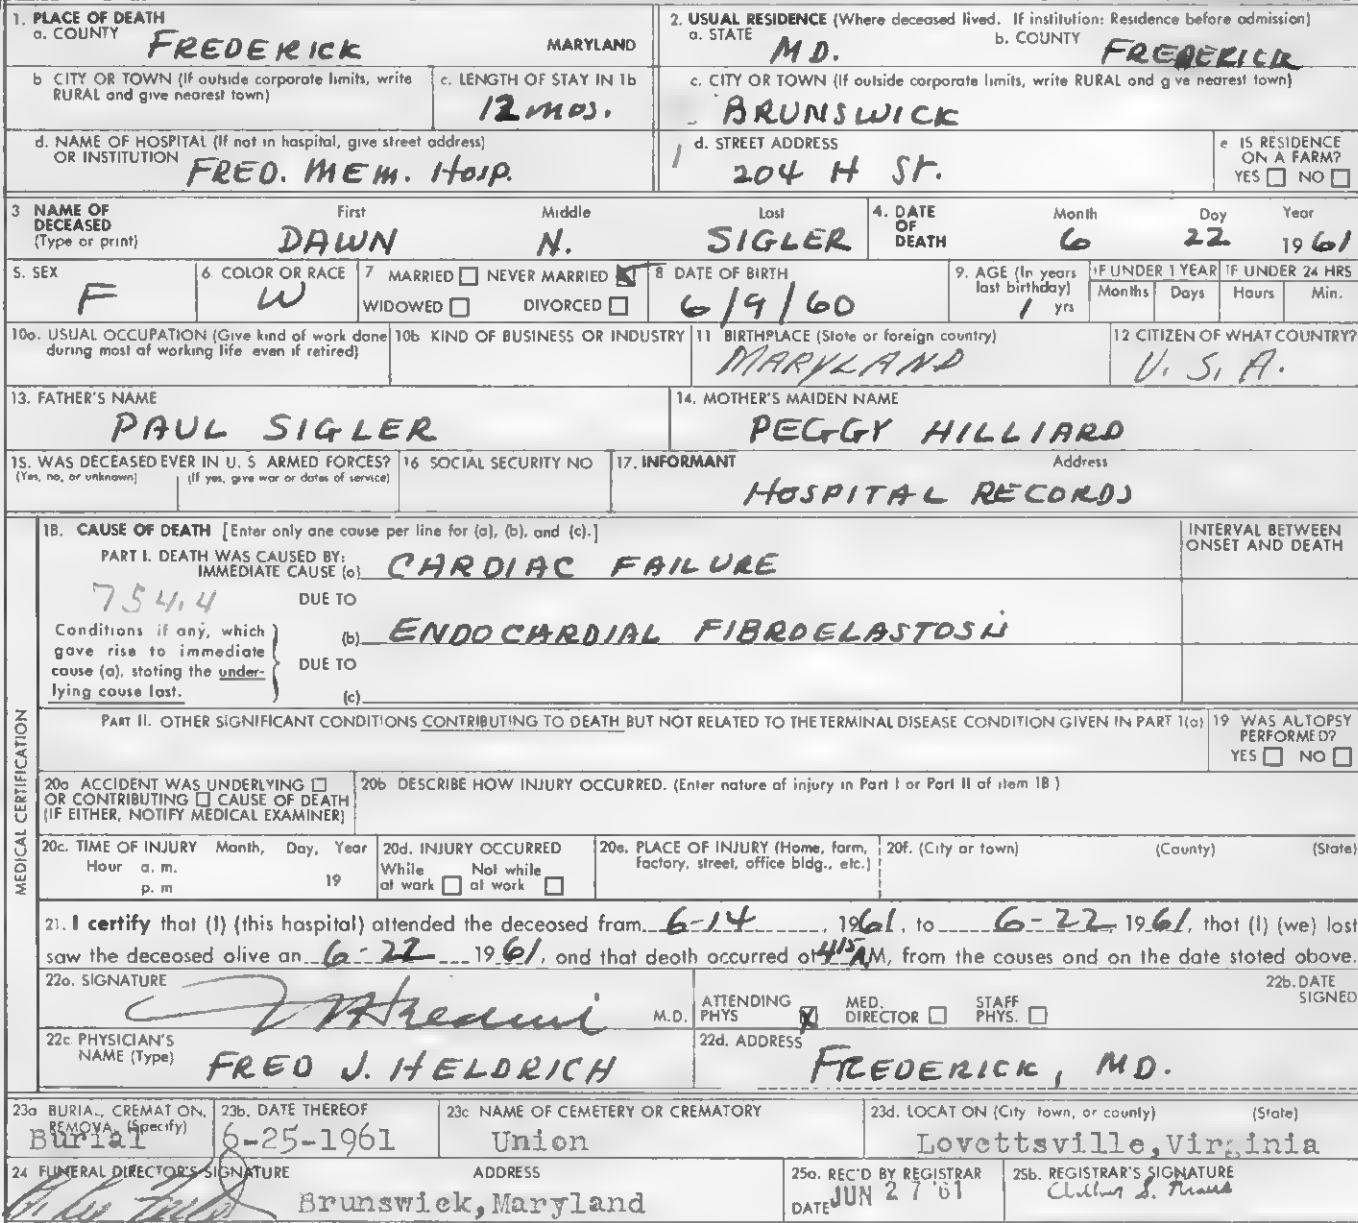 1. PLACE OF DEATH
a. COUNTY FREDERICK MARYLAND
2. USUAL RESIDENCE (Where deceased lived. If institution: Residence before admission)
a. STATE MD. b. COUNTY FREDERICK
b CITY OR TOWN (If outside corporate limits, write RURAL and give nearest town)
c. LENGTH OF STAY IN 1b
12 mos.
c. CITY OR TOWN (If outside corporate limits, write RURAL and give nearest town)
BRUNSWICK
d. NAME OF HOSPITAL (If not in hospital, give street address)
OR INSTITUTION FRED. MEM. HOSP.
d. STREET ADDRESS
204 H ST.
e IS RESIDENCE ON A FARM?
YES NO
3 NAME OF DECEASED (Type or print)
First Middle Last
DAWN N. SIGLER
4. DATE OF DEATH
Month Day Year
6 22 1961
5. SEX
F
6. COLOR OR RACE
W
7 MARRIED NEVER MARRIED
WIDOWED DIVORCED
8 DATE OF BIRTH
6/9/60
9. AGE (In years last birthday)
1 yrs
IF UNDER 1 YEAR IF UNDER 24 HRS
Months Days Hours Min.
10a. USUAL OCCUPATION (Give kind of work done during most of working life even if retired)
10b KIND OF BUSINESS OR INDUSTRY
11 BIRTHPLACE (State or foreign country)
MARYLAND
12 CITIZEN OF WHAT COUNTRY?
U. S. A.
13. FATHER'S NAME
PAUL SIGLER
14. MOTHER'S MAIDEN NAME
PEGGY HILLIARD
15. WAS DECEASED EVER IN U. S ARMED FORCES?
(Yes, no, or unknown) (If yes, give war or dates of service)
16 SOCIAL SECURITY NO
17. INFORMANT Address
HOSPITAL RECORDS
MEDICAL CERTIFICATION
18. CAUSE OF DEATH [Enter only one cause per line for (a), (b), and (c).]
INTERVAL BETWEEN ONSET AND DEATH
PART I. DEATH WAS CAUSED BY:
IMMEDIATE CAUSE (a) CARDIAC FAILURE
754.4
DUE TO
Conditions if any, which gave rise to immediate cause (a), stating the underlying cause last.
(b) ENDOCARDIAL FIBROELASTOSIS
DUE TO
(c)
PART II. OTHER SIGNIFICANT CONDITIONS CONTRIBUTING TO DEATH BUT NOT RELATED TO THE TERMINAL DISEASE CONDITION GIVEN IN PART I(a)
19 WAS AUTOPSY PERFORMED?
YES NO
20a ACCIDENT WAS UNDERLYING
OR CONTRIBUTING CAUSE OF DEATH
(IF EITHER, NOTIFY MEDICAL EXAMINER)
20b DESCRIBE HOW INJURY OCCURRED. (Enter nature of injury in Part I or Part II of item 18)
20c. TIME OF INJURY Month, Day, Year
Hour a. m.
p. m 19
20d. INJURY OCCURRED
While at work Not while at work
20e. PLACE OF INJURY (Home, farm, factory, street, office bldg., etc.)
20f. (City or town) (County) (State)
21. I certify that (I) (this hospital) attended the deceased from 6-14, 1961, to 6-22, 1961, that (I) (we) last
saw the deceased alive on 6-22 1961, and that death occurred at 4:15 AM, from the causes and on the date stated above.
22a. SIGNATURE
M.D.
ATTENDING PHYS MED. DIRECTOR STAFF PHYS.
22b. DATE SIGNED
22c PHYSICIAN'S NAME (Type)
FRED J. HELDRICH
22d. ADDRESS
FREDERICK, MD.
23a BURIAL, CREMATION, REMOVAL (Specify)
Burial
23b. DATE THEREOF
6-25-1961
23c NAME OF CEMETERY OR CREMATORY
Union
23d. LOCATION (City town, or county) (State)
Lovettsville, Virginia
24 FUNERAL DIRECTOR'S SIGNATURE ADDRESS
Brunswick, Maryland
25a. REC'D BY REGISTRAR
DATE JUN 27 '61
25b. REGISTRAR'S SIGNATURE